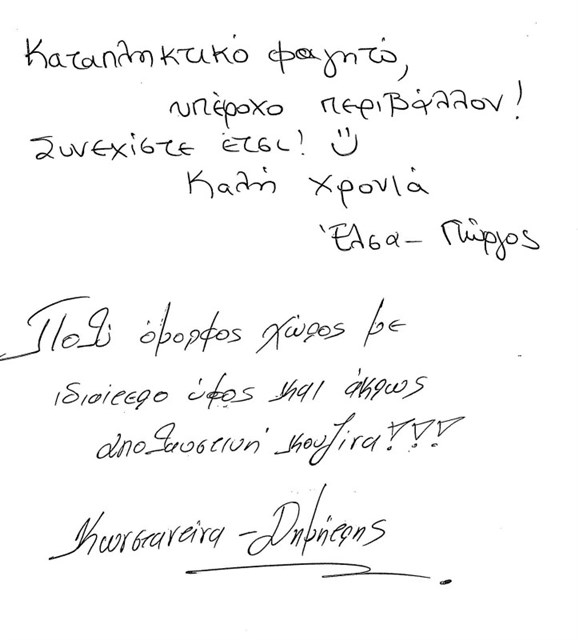 Καταπληκτικό φαγητό,
υπέροχο περιβάλλον!
Συνεχίστε έτσι! ☺
Καλή χρονιά
Έλσα - Γιώργος
Πολύ όμορφος χώρος με
ιδιαίτερο ύφος και άκρως
απολαυστική κουζίνα!!!
Κωνσταντίνα - Δημήτρης